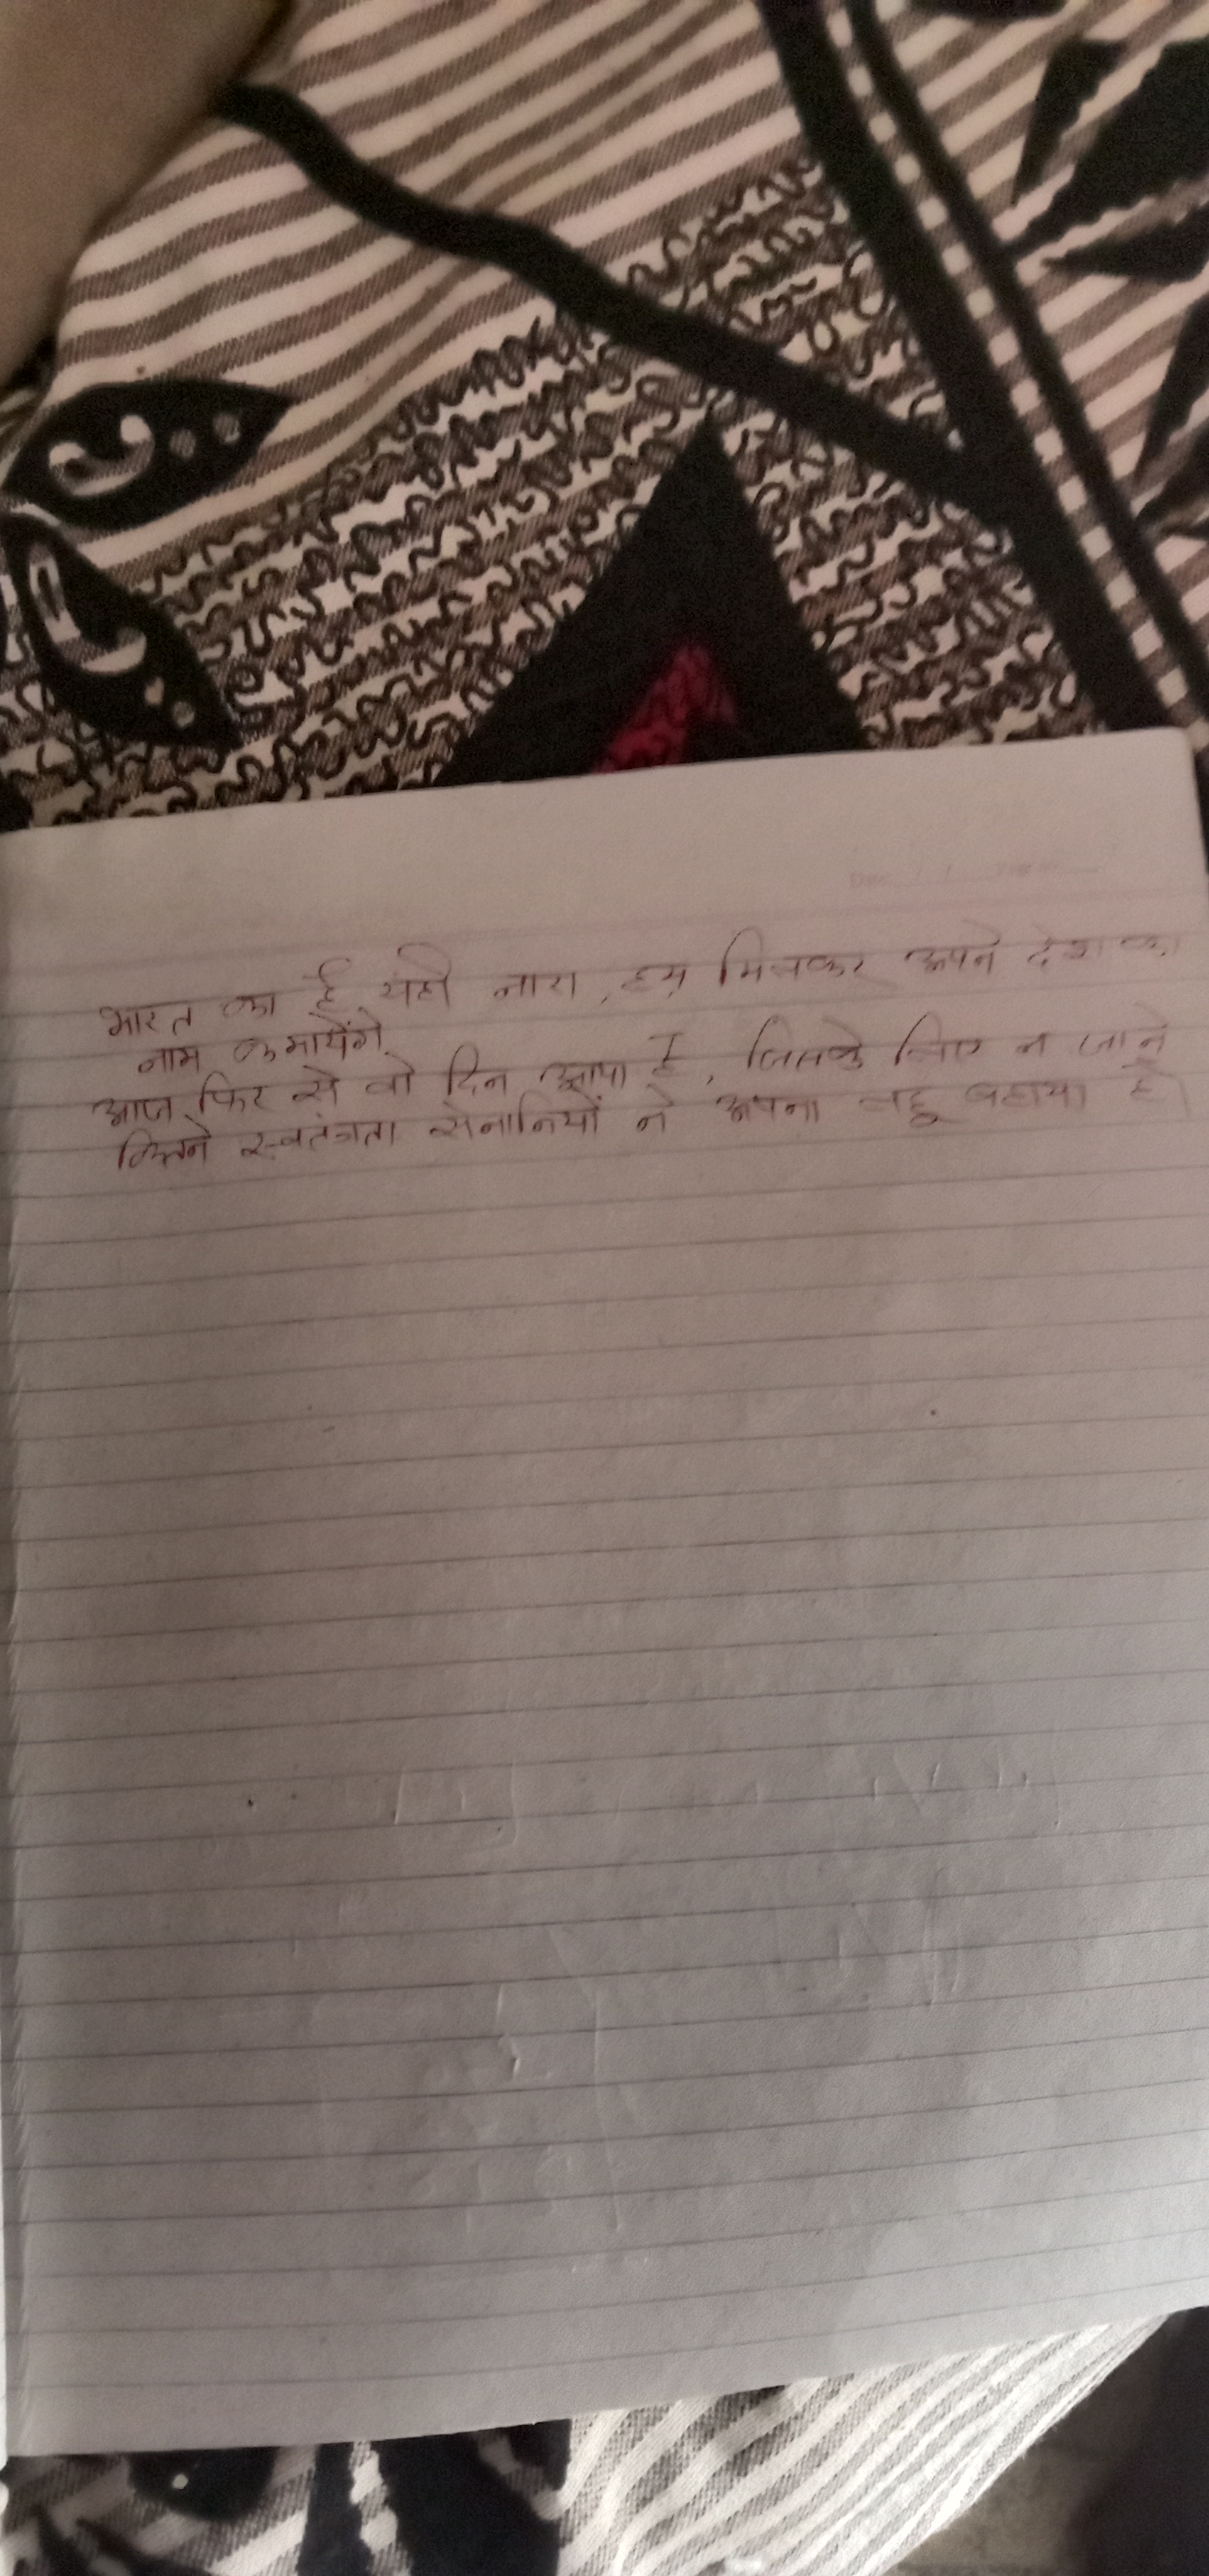 भारत का है यही नारा, हम मिलकर अपने देश का
नाम कमायेंगे
आज फिर से वो दिन आया है, जिसके लिए न जाने
कितने स्वतंत्रता सेनानियों ने अपना लहू बहाया है।